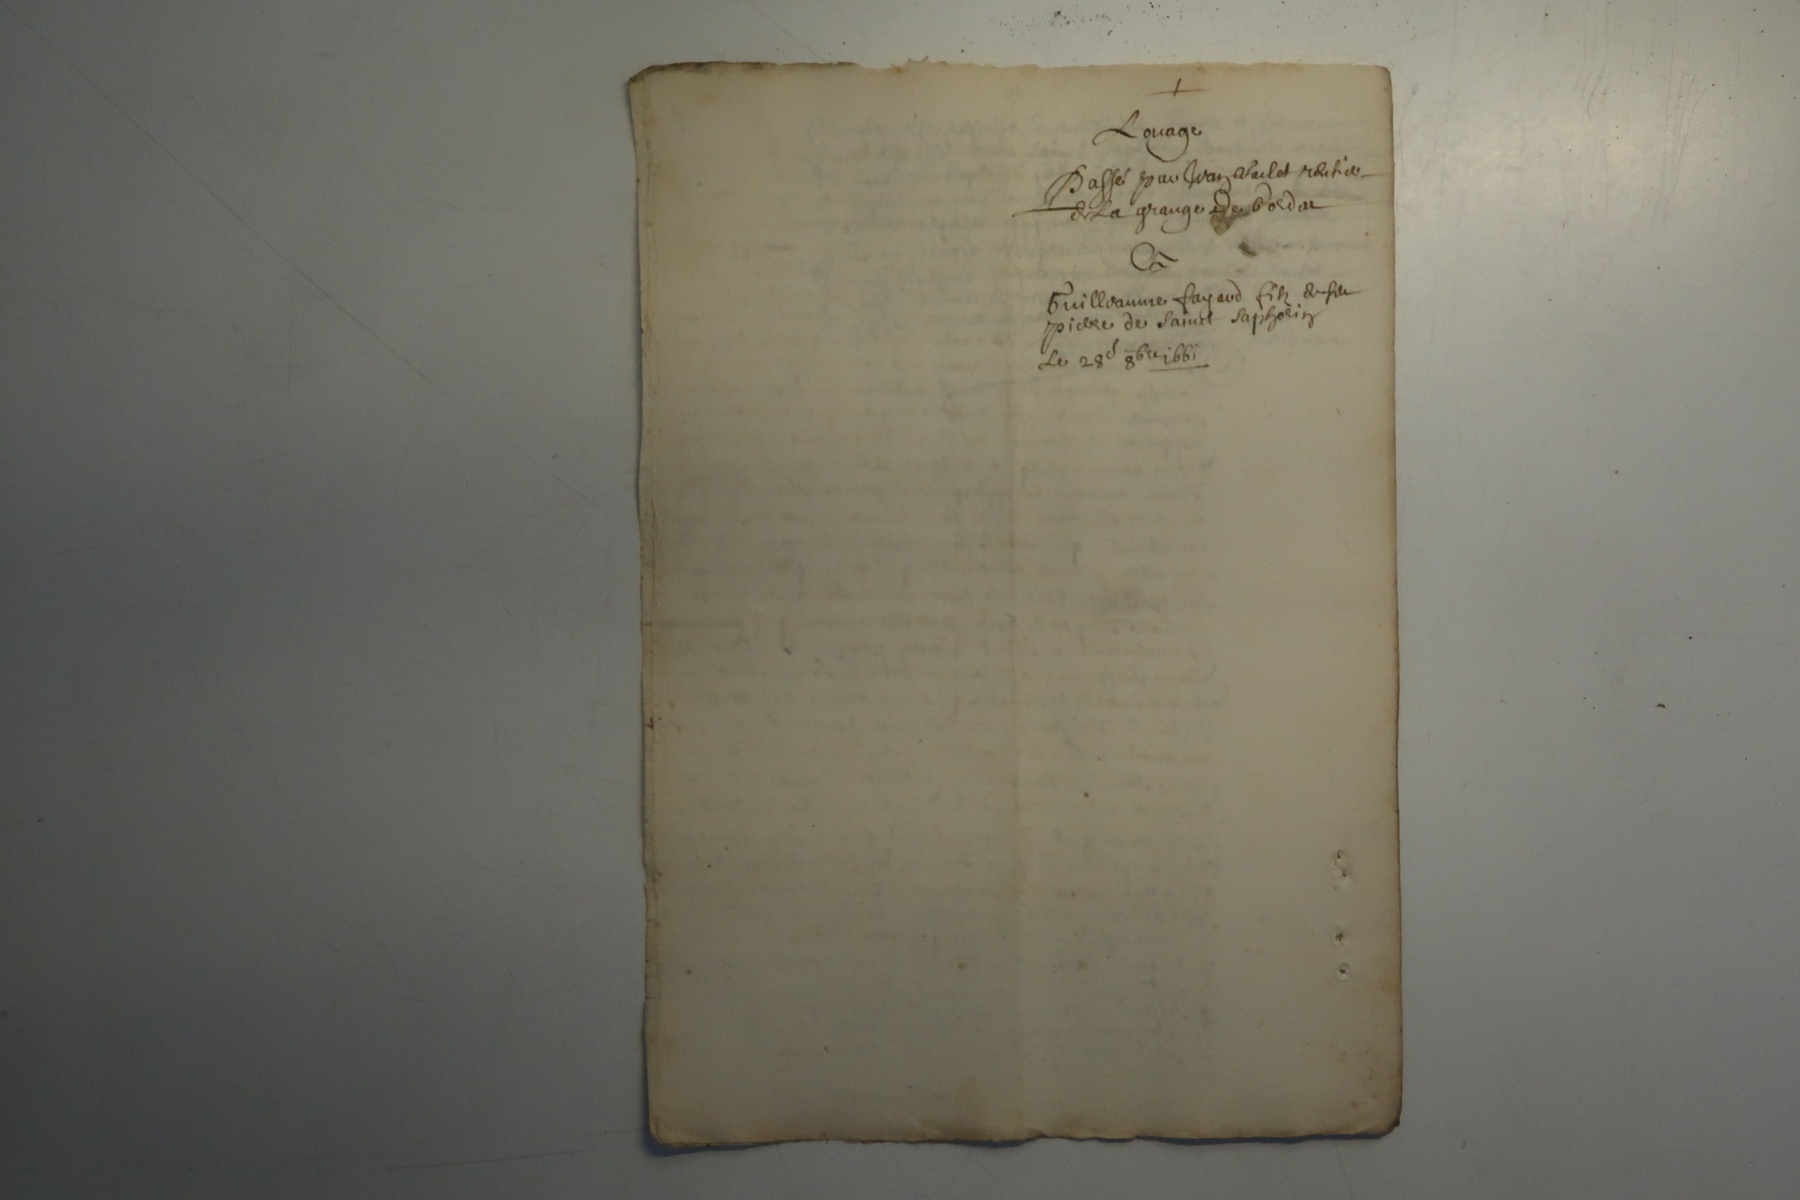 Louage
Passé par Jean Vaulet rentier
de La grange de bordat
A
Guillaume fayard filz de feu
pierre de sainct saphorin
Le 28d 8bre 1661